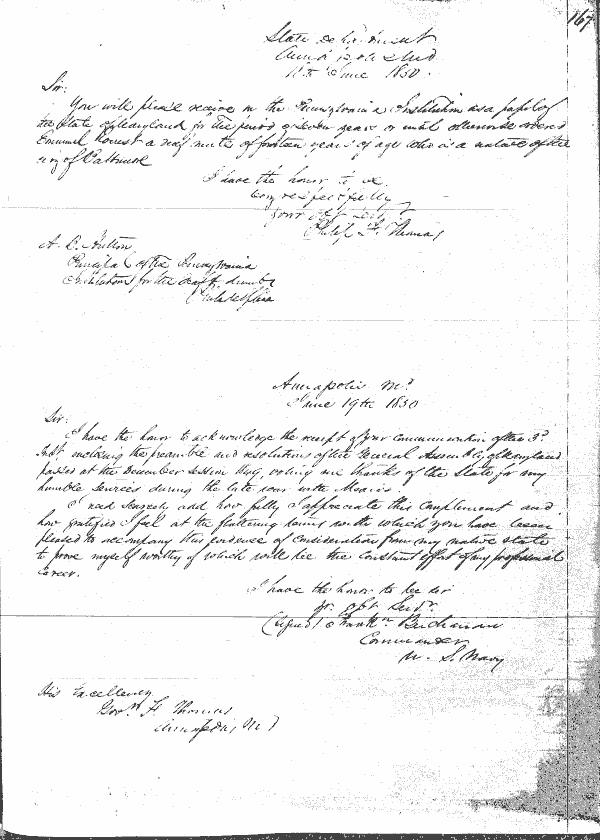 167
State Department
Annapolis Md
11th June 1850.
Sir:
You will please receive in the Pennsylvania Institution as a pupil of
the State of Maryland for the period of seven years or until otherwise ordered
Emanuel a deaf mute of fourteen years of age who is a native of the
city of Baltimore
I have the honor to be
very respectfully
your obt Servt
Philip F. Thomas
A. B. Hutton
Principal of the Pennsylvania
Institution for the deaf & dumb
Philadelphia
Annapolis Md
June 19th 1850
Sir:
I have the honor to acknowledge the receipt of your communication of the 3d
Inst. inclosing the preamble and resolutions of the General Assembly of Maryland
passed at the December Session 1849, voting me thanks of the State for my
humble services during the late war with Mexico.
I need scarcely add how fully I appreciate this compliment and
how gratified I feel at the flattering terms with which you have been
pleased to accompany this evidence of consideration from my native State
to prove myself worthy of which will be the constant effort of my professional
career.
I have the honor to be sir
yr. obt. Servt.
(signed) Frankn Buchanan
Commander
U. S. Navy
His Excellency
Gov. F Thomas
Annapolis, Md